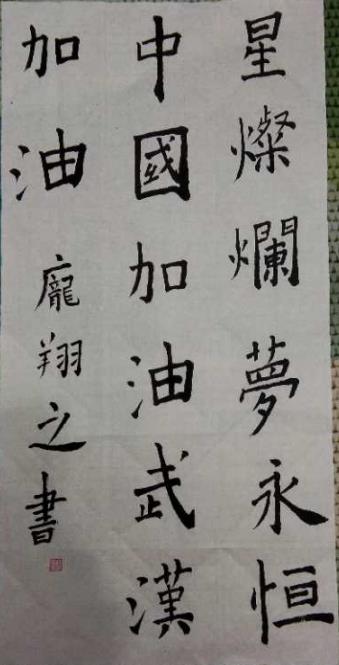 星燦爛夢永恒
中國加油武漢
加油
龐翔之書